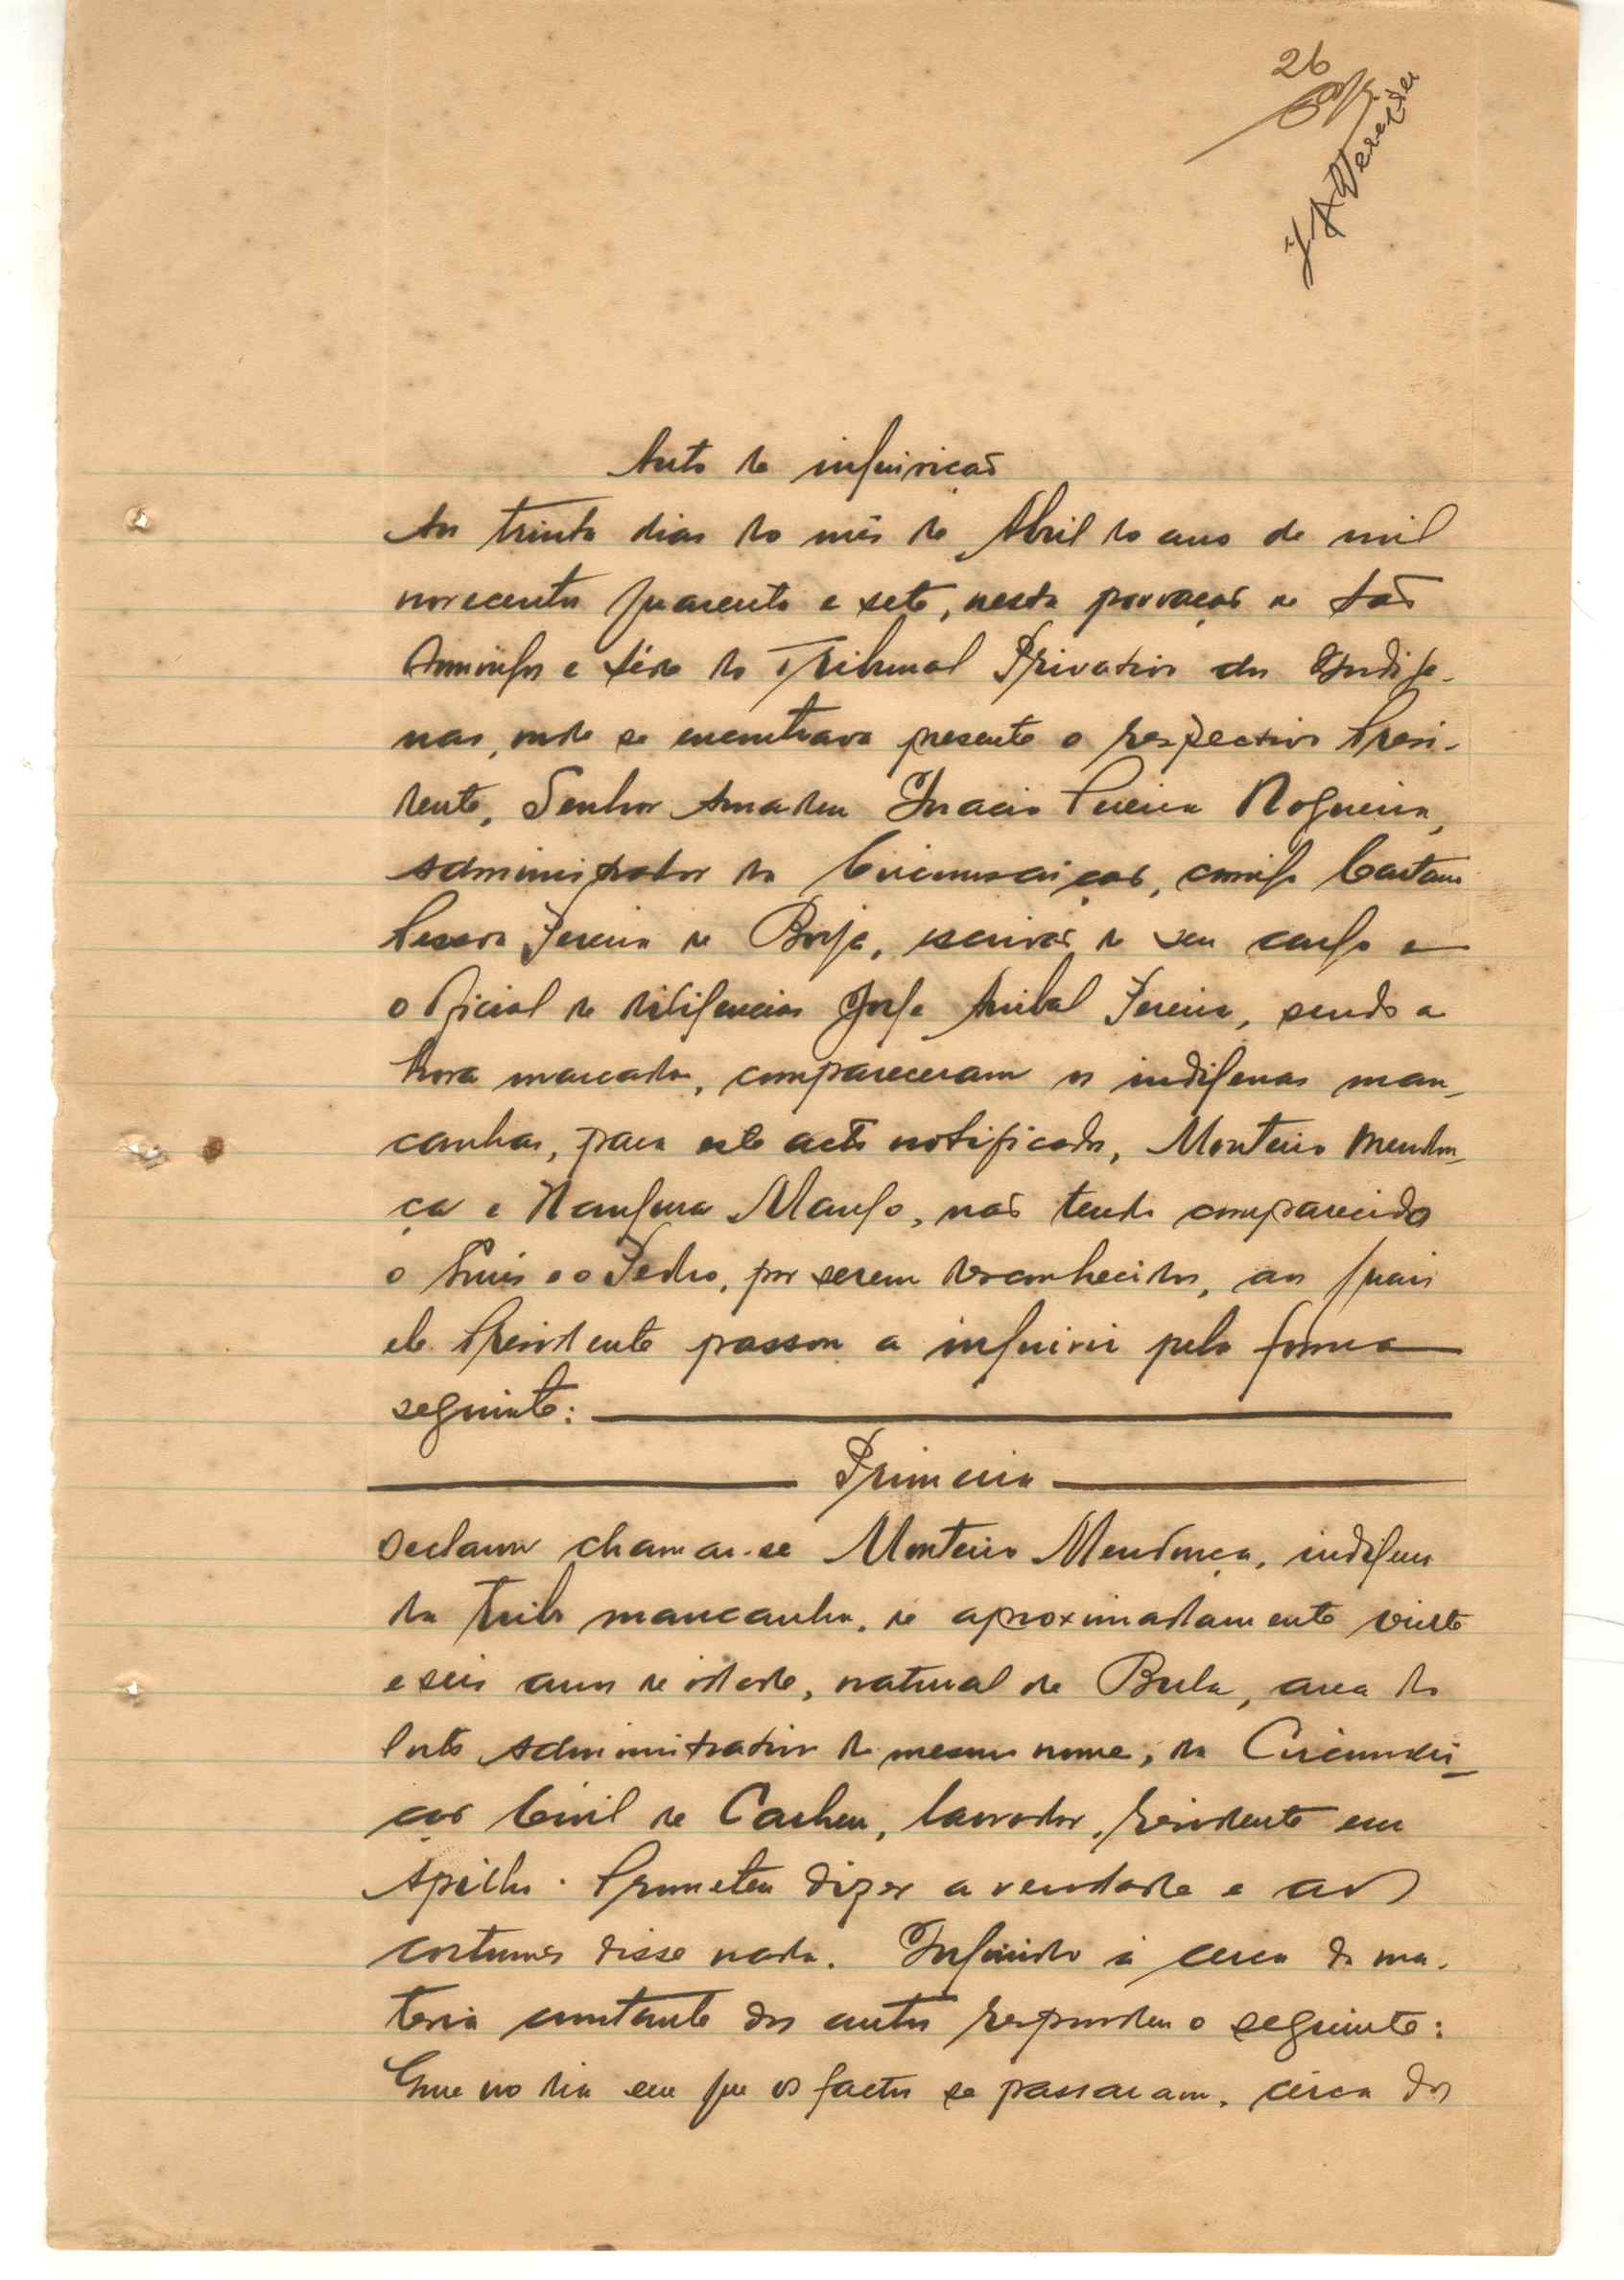 26
Auto de inquirição
Aos trinta dias do mês de Abril do ano de mil
novecentos quarenta e sete, nesta povoação de São
Domingos e séde do Tribunal Privativo dos Indíge-
nas, onde se encontrava presente o respectivo Presi-
dente, Senhor Amadeu Inacio Pereira Nogueira,
Administrador da Circunscrição, comigo Caetano
Pereira de Borja, escrivão de seu cargo e
o oficial de diligencias Jorge Anibal Pereira, sendo a
hora marcada, compareceram os indigenas man-
canhas, para este acto notificados, Monteiro Mendon-
ça e Mango, não tendo comparecido
o Luis e o Pedro, por serem desconhecidos, aos quais
ele Presidente passou a inquirir pela forma
seguinte:
Primeira
Declarou chamar-se Monteiro Mendonça, indigena
da tribo mancanha, de aproximadamente vinte
e seis anos de idade, natural de Bula, area do
Posto Administrativo do mesmo nome, da Circunscri-
ção Civil de Cacheu, lavrador, residente em
Prometeu dizer a verdade e aos
costumes disse nada. Inquirido á cerca da ma-
teria constante dos autos respondeu o seguinte:
Que no dia em que os factos se passaram, cerca das